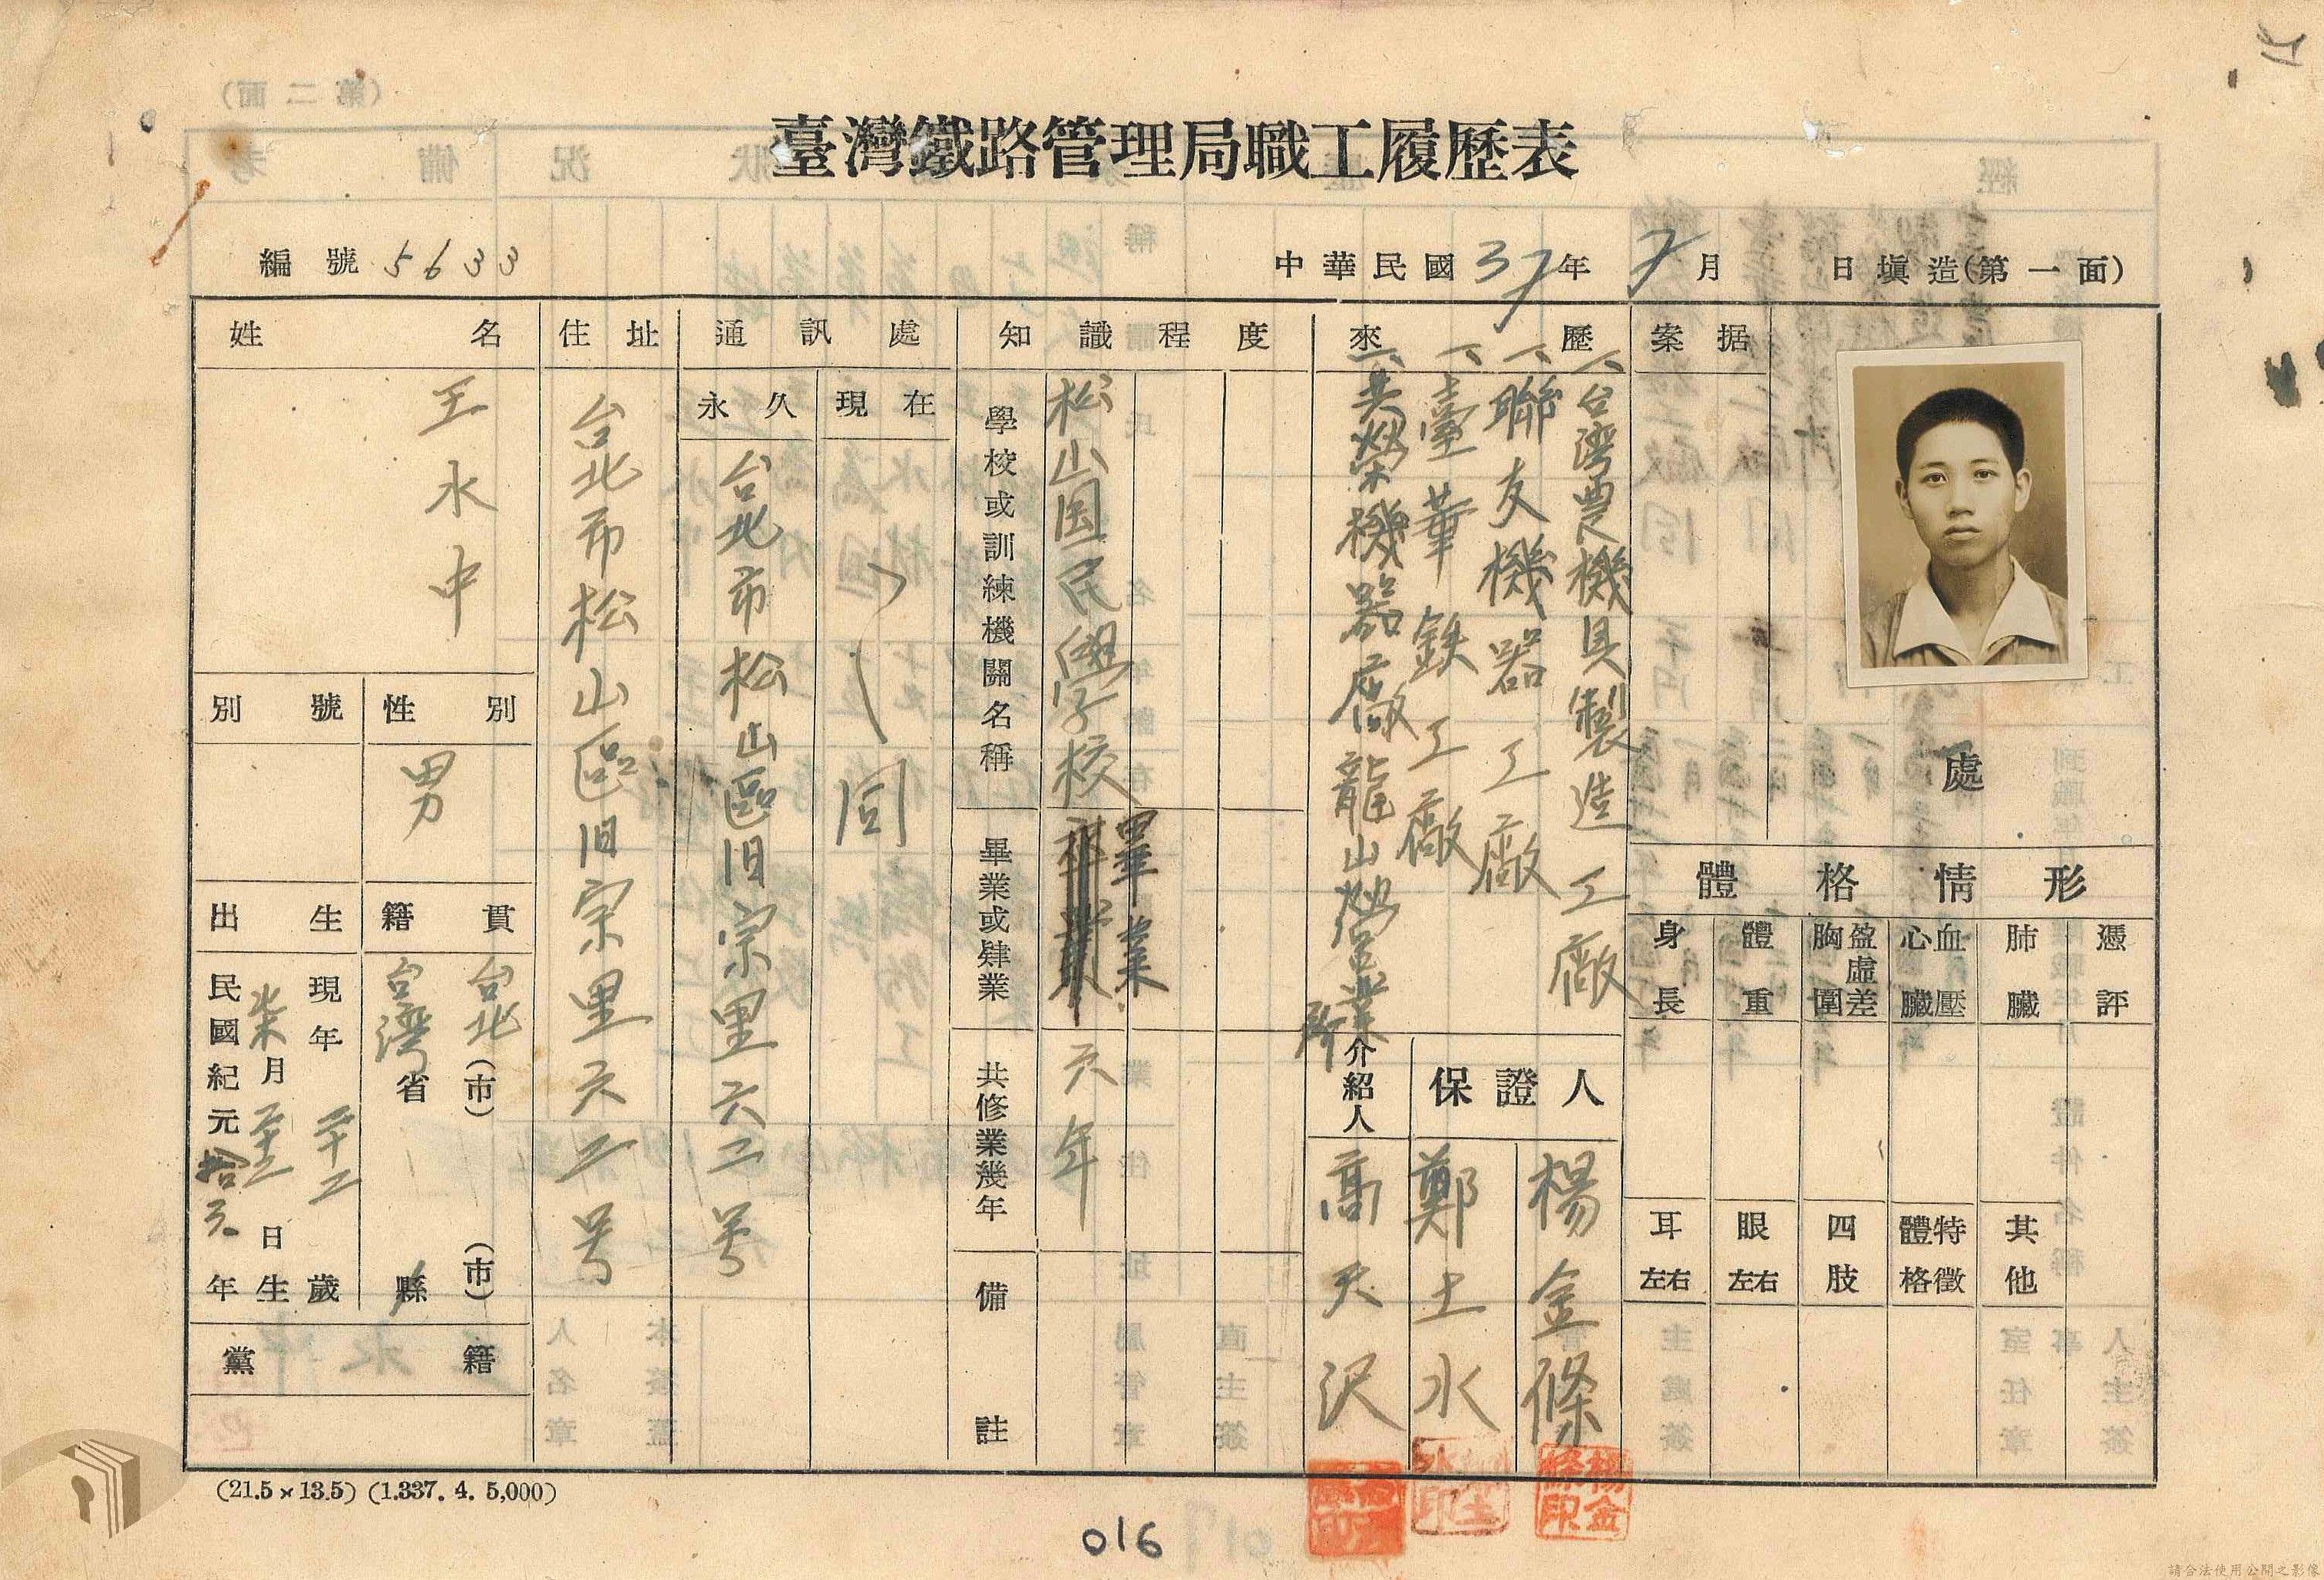 臺灣鐵路管理局職工履歷表
編號 5633
中華民國37年7月 日塡造(第一面)
姓名
王水中
別號
性別
男
出生
民國紀元拾六年
柒月
日生
現年二十二歲
籍貫
台灣省
台北(市)
縣(市)
黨籍
住址
台北市松山區旧宗里六二号
通訊處
永久
台北市松山區旧宗里六二号
現在
同
知識程度
學校或訓練機關名稱
松山国民學校
畢業或肄業
畢業
共修業幾年
六年
備註
來歷
一、台湾農機具製造工廠
一、聯友機器工廠
一、臺華鉄工廠
一、共榮機器廠龍山營業所
介紹人
高天沢
保證人
楊金條
鄭土水
案据處
體格情形
身長
體重
胸圍盈虛差
心臟血壓
肺臟
憑評
耳左右
眼左右
四肢
體格特徵
其他
楊金條印
(21.5×13.5) (1.337. 4. 5,000)
016
請合法使用公開之影像